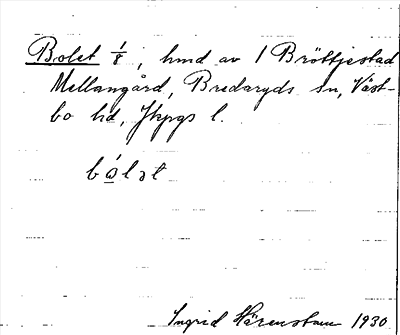 Bolet 1/8, hmd av 1 Bröttjestad
Mellangård, Bredaryds sn, Väst-
bo hd, Jkpgs l.
bo̲´lət
Ingrid Härenstam 1930